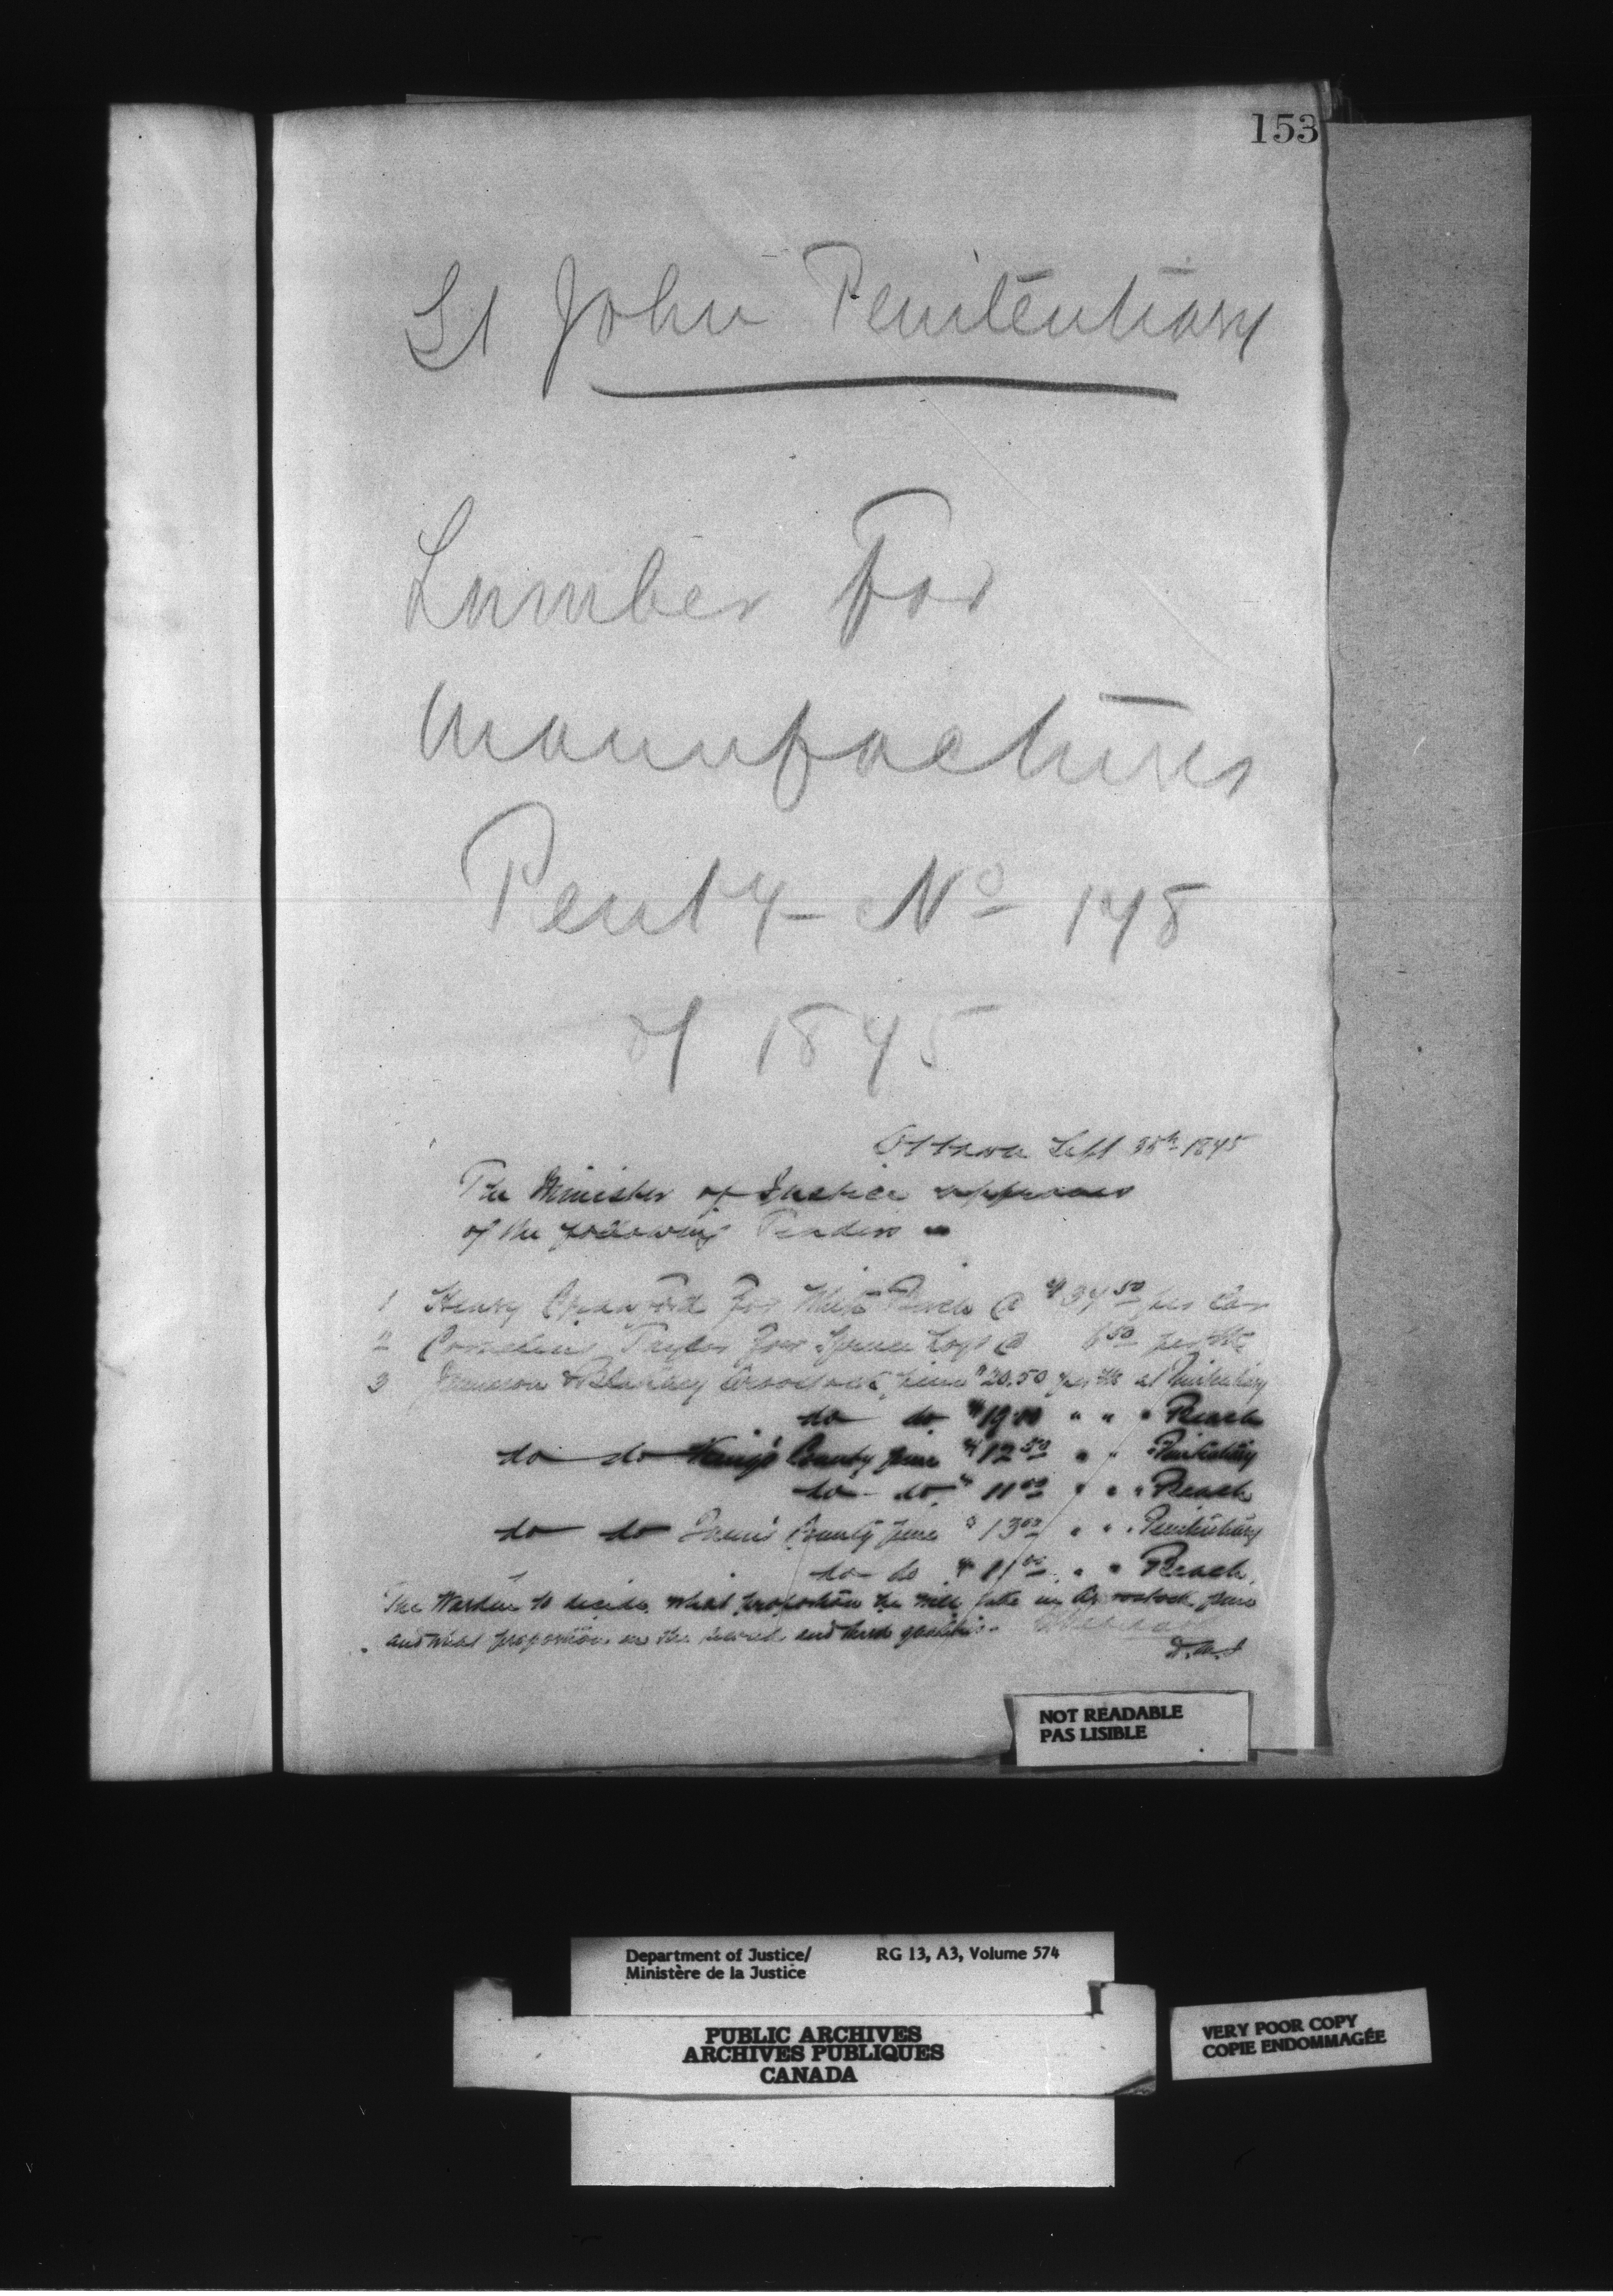 153
St John Penitentiary
Lumber For
Manufactures
Penty No 148
of 1875
Ottawa Sept 25th 1875
The Minister of Justice approves
of the following Tenders
1 Henry Crawford For White Birch @ $34.50 per
2 Cornelius Taylor For Spruce Logs @ 6.50 per M
3 Jameson & Aroostook pine $20.50 per M at Penitentiary
do do $19.00 " " " Beach
do do King's County pine $12.50 " " " Penitentiary
do do " 11.00 " " " Beach
do do Queen's County pine $13.00 " " " Penitentiary
do do $11.00 " " Beach
The Warden to decide what proportion he will take in Aroostook pine
and what proportion in the second and third qualities.
D.M.J
NOT READABLE
PAS LISIBLE
Department of Justice/ RG 13, A3, Volume 574
Ministère de la Justice
PUBLIC ARCHIVES
ARCHIVES PUBLIQUES
CANADA
VERY POOR COPY
COPIE ENDOMMAGÉE